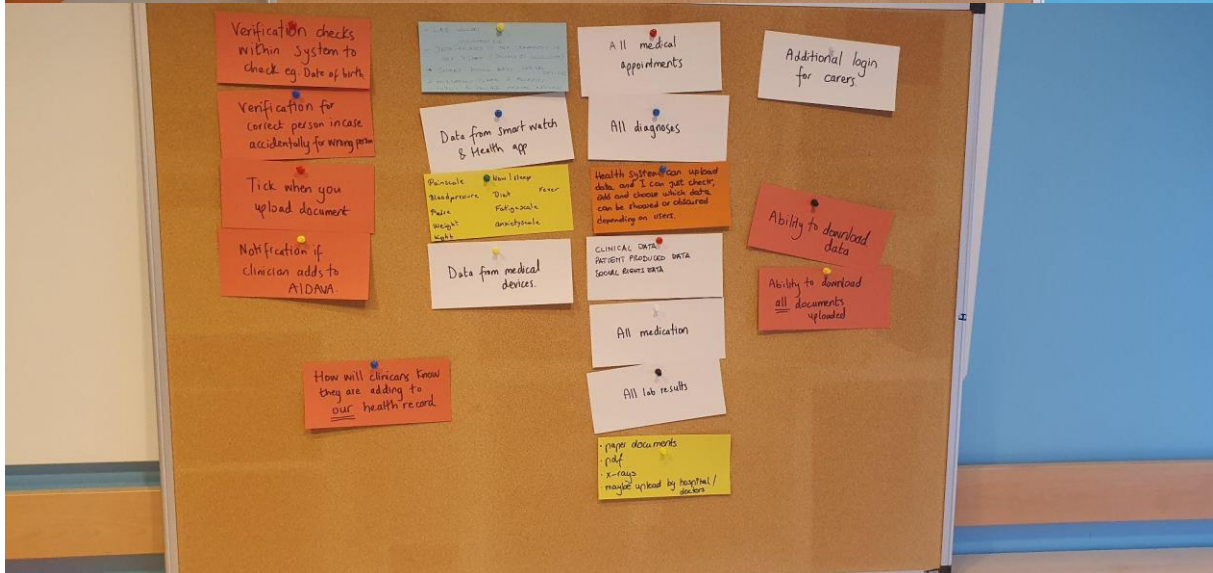 Verification checks
within system to
check eg. Date of birth
Verification for
correct person incase
accidentally for wrong person
Tick when you
upload document
Notification if
clinician adds to
AIDAVA.
How will clinicans know
they are adding to
our health record
Data from smart watch
& Health app
Painscale How I sleep
Bloodpressure Diet Fever
Pulse Fatiguescale
Weight anxietyscale
Data from medical
devices.
All medical
appointments
All diagnoses
Health system can upload
data and I can just check,
add and choose which data
can be showed or obscured
depending on users.
CLINICAL DATA
PATIENT PRODUCED DATA
SOCIAL RIGHTS DATA
All medication
All lab results
· paper documents
· pdf
· x-rays
maybe upload by hospital/
doctors
Additional login
for carers.
Ability to download
data
Ability to download
all documents
uploaded